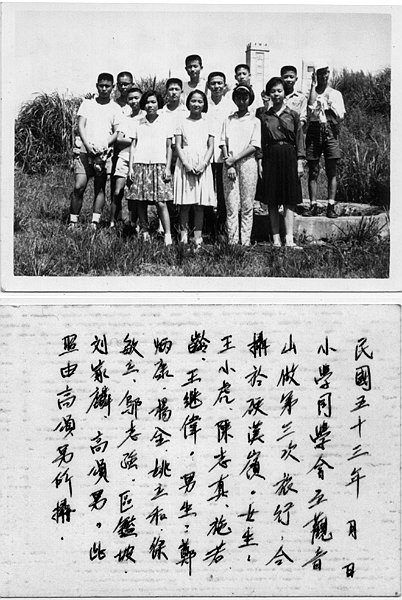 民國五十三年 月 日
小學同學會 觀音
山做第三次旅行,合
攝於硬漢嶺。女生:
王小虎、陳志真、施若
齡、王繼偉。男生:鄭
炳康 楊金 姚立和、徐
敏 、鄔志強、區鑑坡
刘家麟 高頌男。此
照由高頌男所攝.